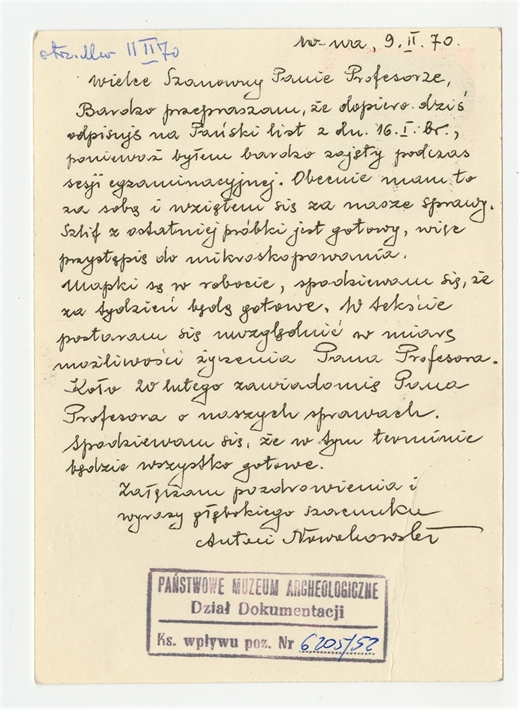 otrz. Mw 11 II 70
W-wa, 9.II.70.
Wielce Szanowny Panie Profesorze,
Bardzo przepraszam, że dopiero dziś
odpisuję na Pański list z dn. 16.I.br.,
ponieważ byłem bardzo zajęty podczas
sesji egzaminacyjnej. Obecnie mam to
za sobą i wziąłem się za nasze sprawy.
Szlif z ostatniej próbki jest gotowy, więc
przystąpię do mikroskopowania.
Mapki są w robocie, spodziewam się, że
za tydzień będą gotowe. W tekście
postaram się uwzględnić w miarę
możliwości życzenia Pana Profesora.
Koło 20 lutego zawiadomię Pana
Profesora o naszych sprawach.
Spodziewam się, że w tym terminie
będzie wszystko gotowe.
Załączam pozdrowienia i
wyrazy głębokiego szacunku
Antoni Nowakowski
PAŃSTWOWE MUZEUM ARCHEOLOGICZNE
Dział Dokumentacji
Ks. wpływu poz. Nr 6205/52